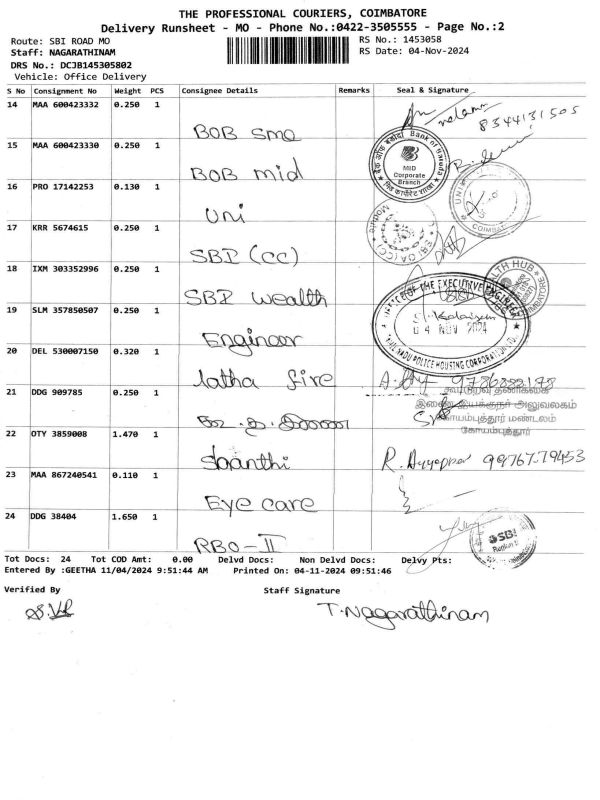 THE PROFESSIONAL COURIERS, COIMBATORE
Delivery Runsheet - MO - Phone No.:0422-3505555 - Page No.:2
Route: SBI ROAD MO
RS No.: 1453058
Staff: NAGARATHINAM
RS Date: 04-Nov-2024
DRS No.: DCJB145305802
Vehicle: Office Delivery
S No Consignment No Weight PCS Consignee Details Remarks Seal & Signature
14 MAA 600423332 0.250 1
8344131505
BOB SME
15 MAA 600423330 0.250 1
Bank of Baroda
MID
Corporate
Branch
BOB mid
16 PRO 17142253 0.130 1
Uni
17 KRR 5674615 0.250 1
SBI (CC)
18 IXM 303352996 0.250 1
SBI wealth
19 SLM 357850507 0.250 1
OFFICE OF THE EXECUTIVE ENGINEER
04 NOV 2024
TAMIL NADU POLICE HOUSING CORPORATION
Engineer
20 DEL 530007150 0.320 1
latha fire
21 DDG 909785 0.250 1
கூட்டுறவு தணிக்கை
அலுவலகம்
கோயம்புத்தூர் மண்டலம்
கோயம்புத்தூர்
22 OTY 3859008 1.470 1
Shanthi R. Ayyappan 9976779453
23 MAA 867240541 0.110 1
Eye care
24 DDG 38404 1.650 1
SBI
RBO-II
Tot Docs: 24 Tot COD Amt: 0.00 Delvd Docs: Non Delvd Docs: Delvy Pts:
Entered By :GEETHA 11/04/2024 9:51:44 AM Printed On: 04-11-2024 09:51:46
Verified By Staff Signature
T. Nagarathinam